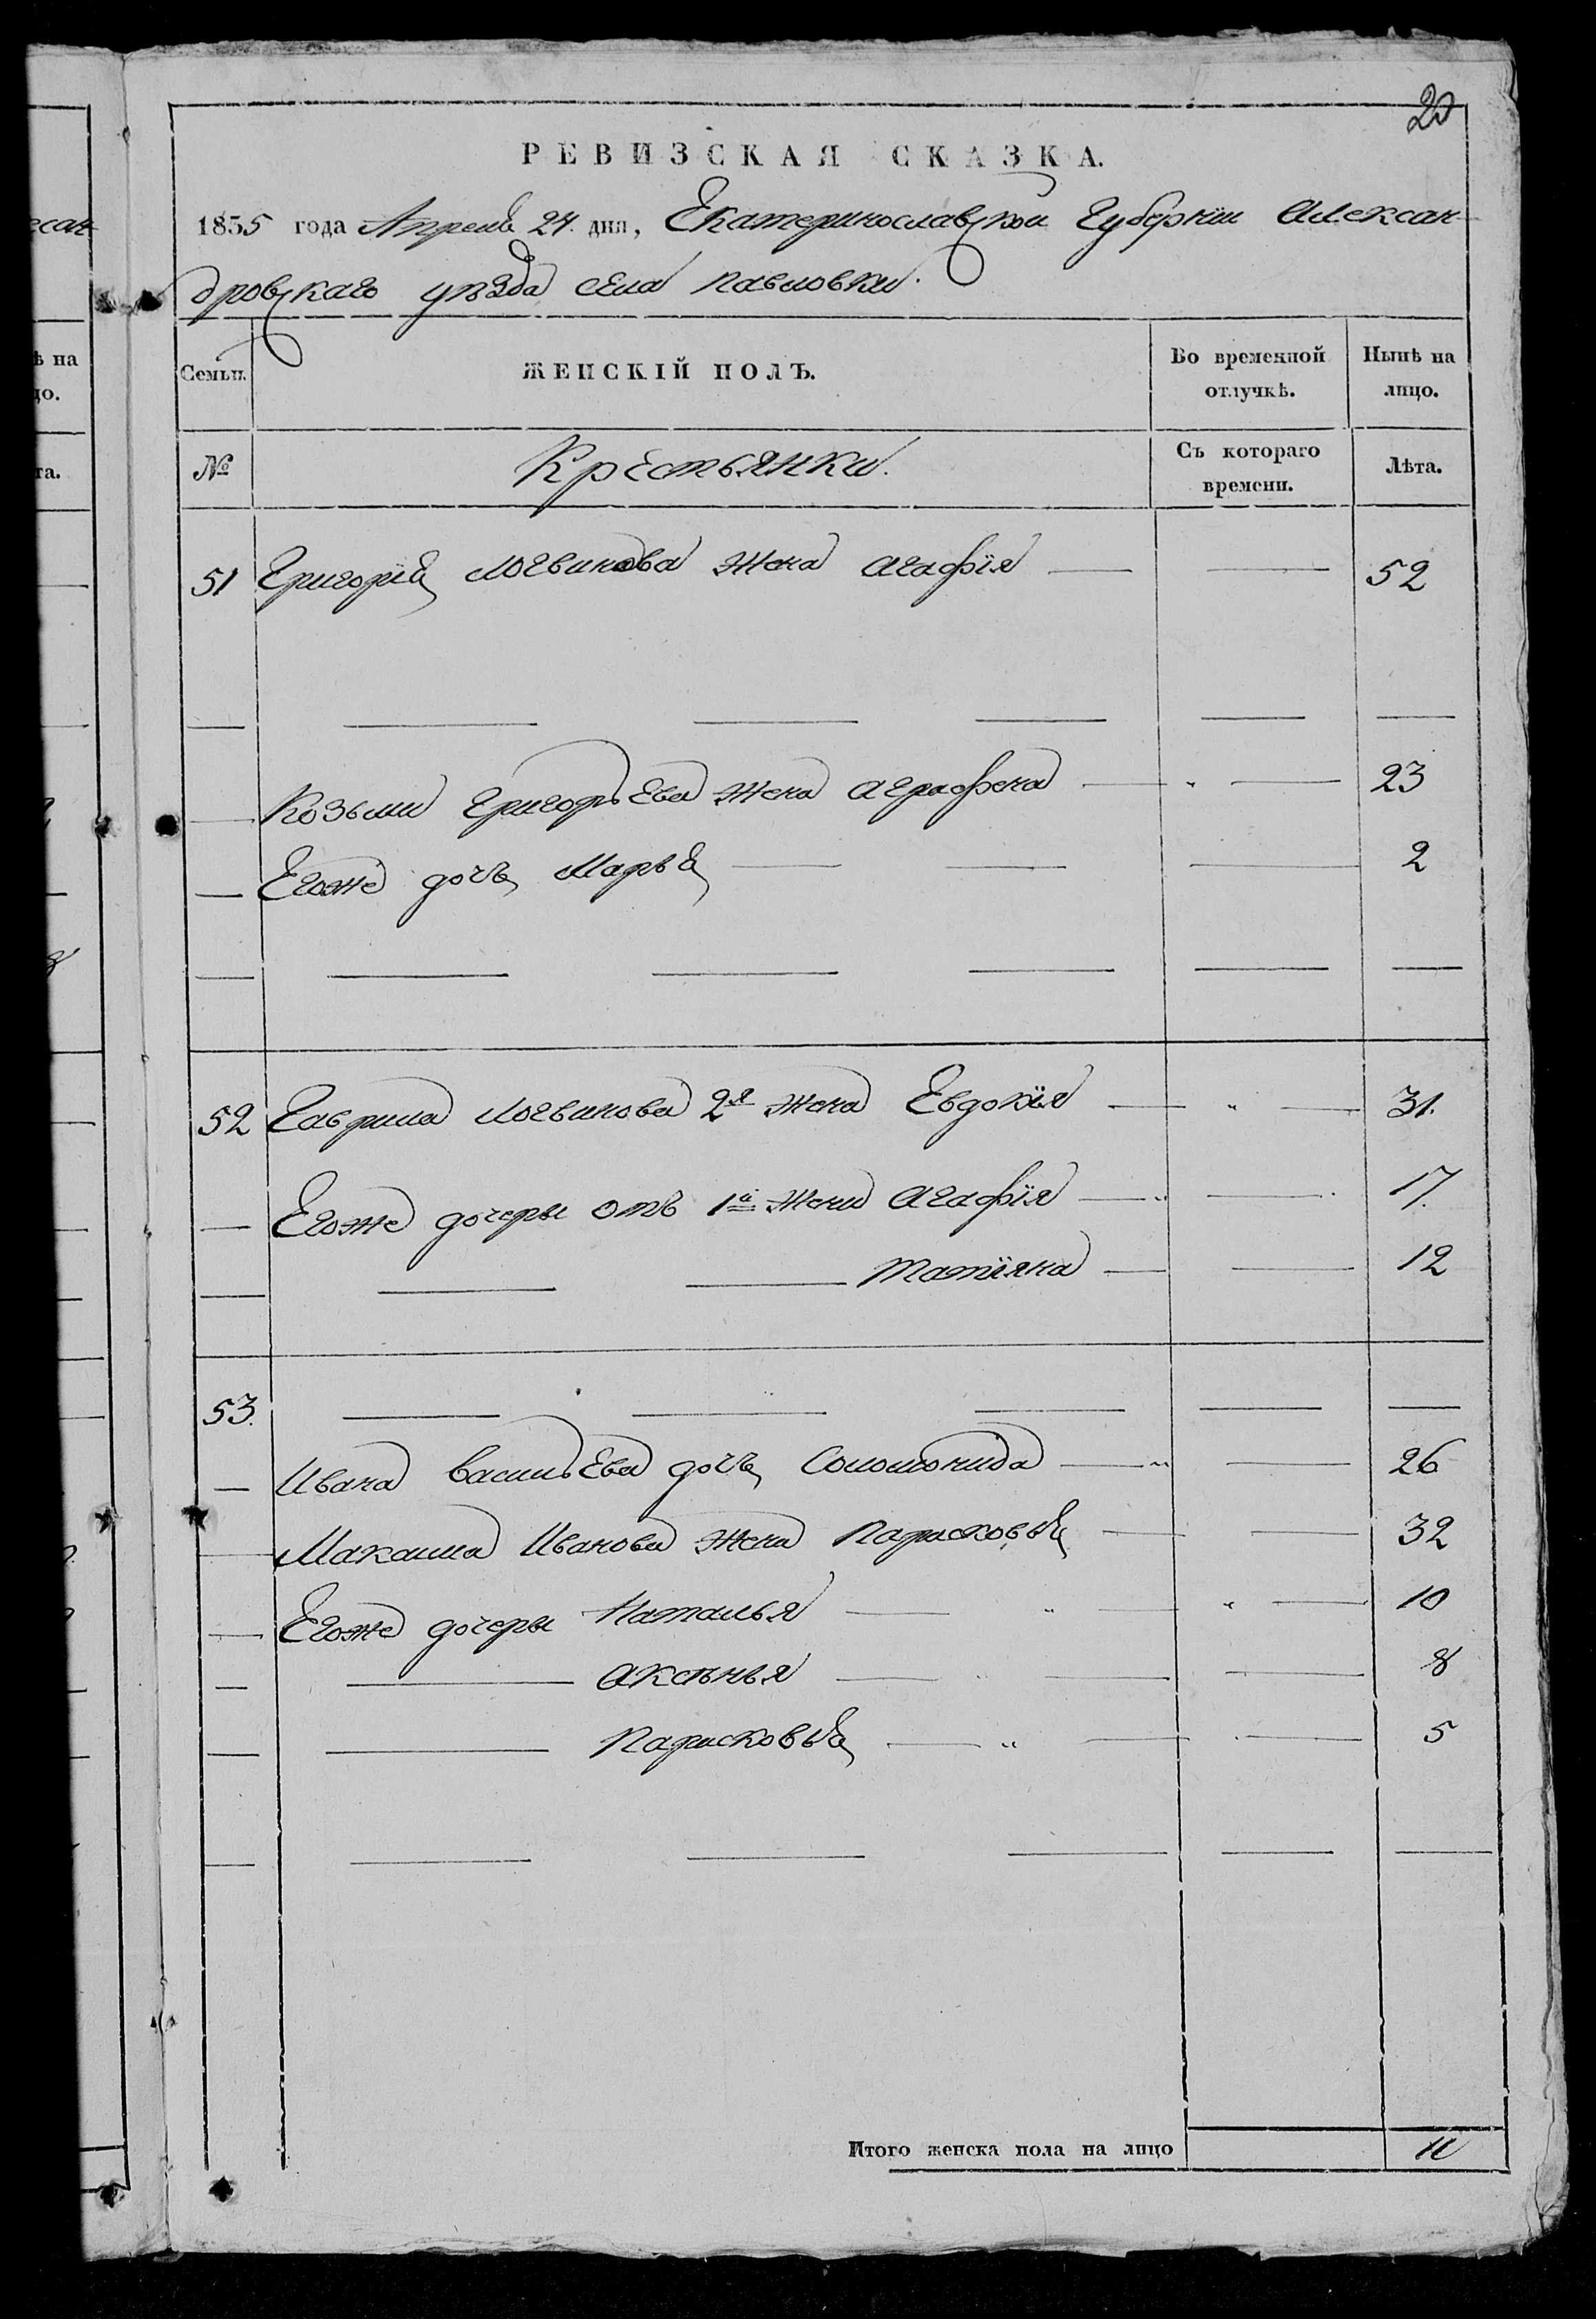 20
РЕВИЗСКАЯ СКАЗКА.
1835 года Апреля 24. дня, Екатеринославской Губернїи Алексан-
дровскаго уѣзда села Павловки.
Семьи. ЖЕНСКІЙ ПОЛЪ. Во временной отлучкѣ. Нынѣ на лицо.
№ Крестьянки. Съ котораго времени. Лѣта.
51 Григорїя Логвинова жена Агафїя 52
Козьмы Григорьева жена Аграфена 23
Егоже дочь Марья 2
52 Гаврила Логвинова 2я жена Евдокїя 31.
Егоже дочеры отъ 1й жены Агафїя 17.
Татїяна 12
53.
Ивана Васильева дочь Соломонида 26
Макаима Иванова жена Парасковья 32
Егоже дочеры Наталья 10
Аксѣнья 8
Парасковья 5
Итого женска пола на лицо 11
есан
ѣ на
цо.
та.